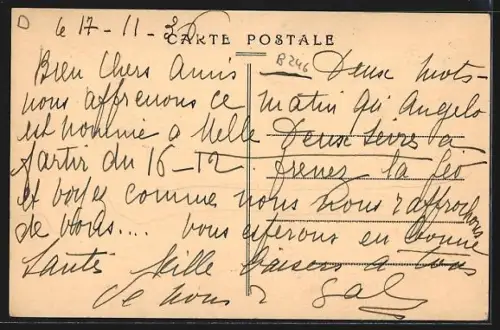 D
le 17-11-36
CARTE POSTALE
B246
Bien Chers Amis Deux mots
nous apprenons ce matin qu'Angelo
est nommé a Melle Deux Sèvres a
partir du 16-12 prenez la Géo
et voyez comme nous nous rapprochons
de vous.... vous espérons en bonne
santé Mille baisers a tous
de nous 2 Gal